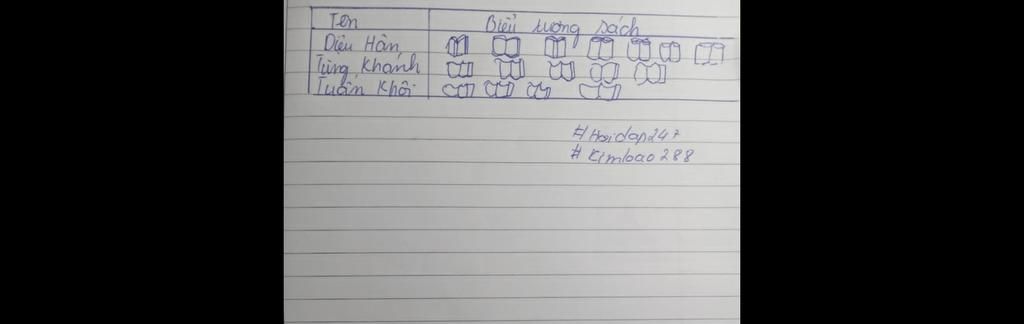 Tên Biểu tượng sách
Diệu Hân
Tùng Khánh
Tuấn Khôi
#Hoidap247
#Kimbao288